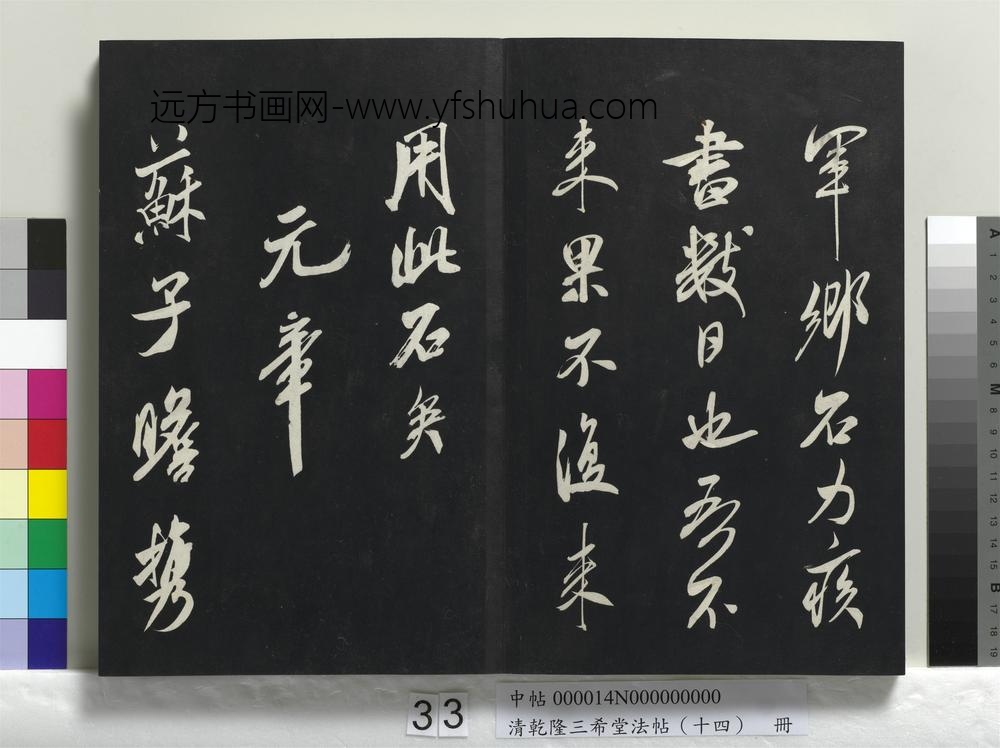 远方书画网-www.yfshuhua.com
軍鄉石力疾
書數日也吾不
来果不復来
用此石矣
元章
蘇子瞻携
A 1 2 3 4 5 6 M 8 9 10 11 12 13 14 15 B 17 18 19
33
中帖 000014N000000000
清乾隆三希堂法帖（十四） 冊